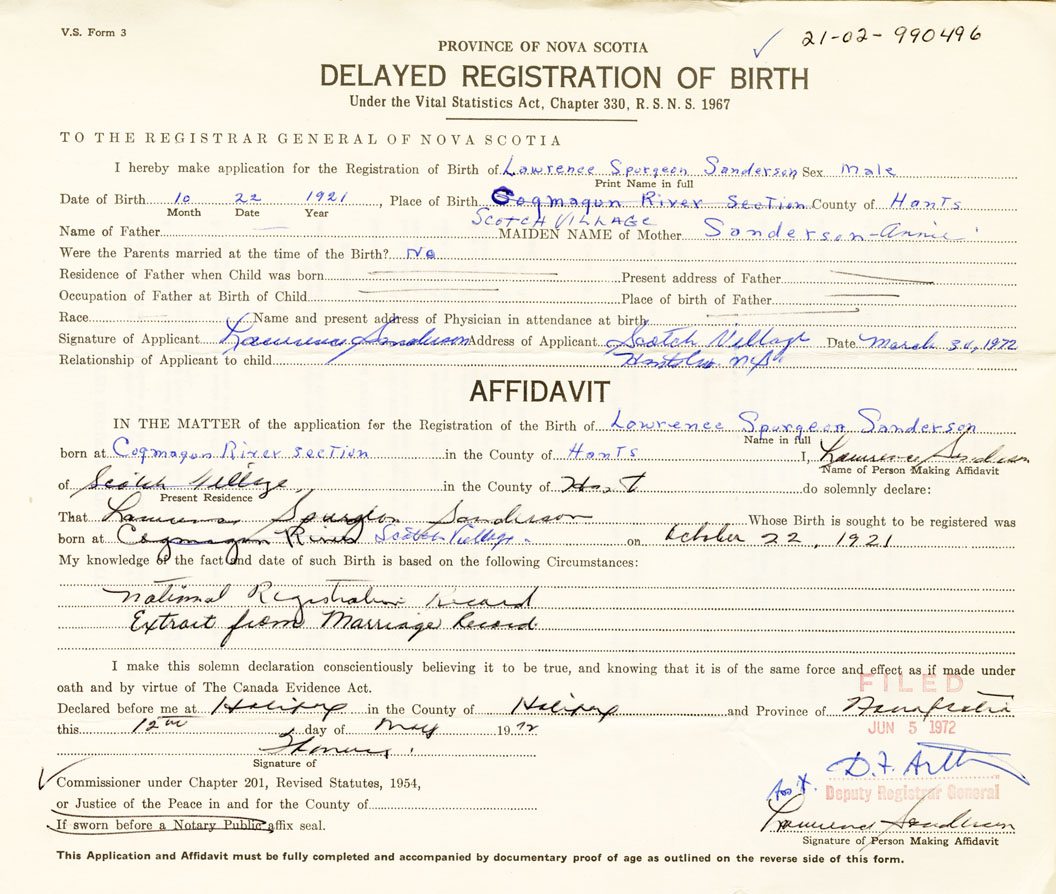 V.S. Form 3
21-02-990496
PROVINCE OF NOVA SCOTIA
DELAYED REGISTRATION OF BIRTH
Under the Vital Statistics Act, Chapter 330, R. S. N. S. 1967
TO THE REGISTRAR GENERAL OF NOVA SCOTIA
I hereby make application for the Registration of Birth of Lawrence Spurgeon Sanderson Sex Male
Print Name in full
Date of Birth 10 22 1921, Place of Birth Cogmagun River Section County of Hants
Month Date Year
SCOTCH VILLAGE
Name of Father MAIDEN NAME of Mother Sanderson-Annie
Were the Parents married at the time of the Birth? No
Residence of Father when Child was born Present address of Father
Occupation of Father at Birth of Child Place of birth of Father
Race Name and present address of Physician in attendance at birth
Signature of Applicant Lawrence Sanderson Address of Applicant Scotch Village Date March 30, 1972
Relationship of Applicant to child Hants Co. N.S.
AFFIDAVIT
IN THE MATTER of the application for the Registration of the Birth of Lawrence Spurgeon Sanderson
Name in full
born at Cogmagun River section in the County of Hants I, Lawrence Sanderson
Name of Person Making Affidavit
of Scotch Village, in the County of Hant do solemnly declare:
Present Residence
That Lawrence Spurgeon Sanderson Whose Birth is sought to be registered was
born at Cogmagun River Scotch Village on October 22, 1921
My knowledge of the fact and date of such Birth is based on the following Circumstances:
National Registration Record
Extract from Marriage Record
I make this solemn declaration conscientiously believing it to be true, and knowing that it is of the same force and effect as if made under
oath and by virtue of The Canada Evidence Act.
FILED
Declared before me at Halifax in the County of Halifax and Province of Nova Scotia
this 12th day of May 1972
JUN 5 1972
Signature of
Commissioner under Chapter 201, Revised Statutes, 1954,
D. F. Arth
Ass't. Deputy Registrar General
or Justice of the Peace in and for the County of
If sworn before a Notary Public affix seal.
Lawrence Sanderson
Signature of Person Making Affidavit
This Application and Affidavit must be fully completed and accompanied by documentary proof of age as outlined on the reverse side of this form.